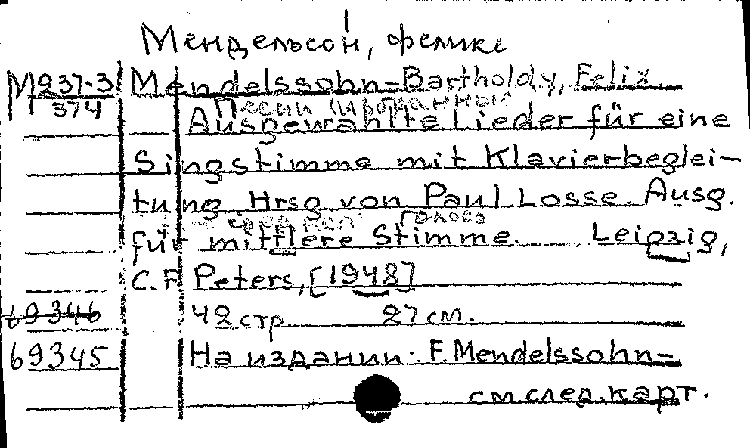 Мендельсон, Феликс
М237-3 Mendelssohn-Bartholdy, Felix
374 Песни
Ausgewählte Lieder für eine
Singstimme mit Klavierbeglei-
tung. Hrsg. von Paul Losse. Ausg.
голоса
für mittlere Stimme. Leipzig,
C.F. Peters, [1948]
69346 42 стр. 27 см.
69345 На издании: F. Mendelssohn-
см. след. карт.